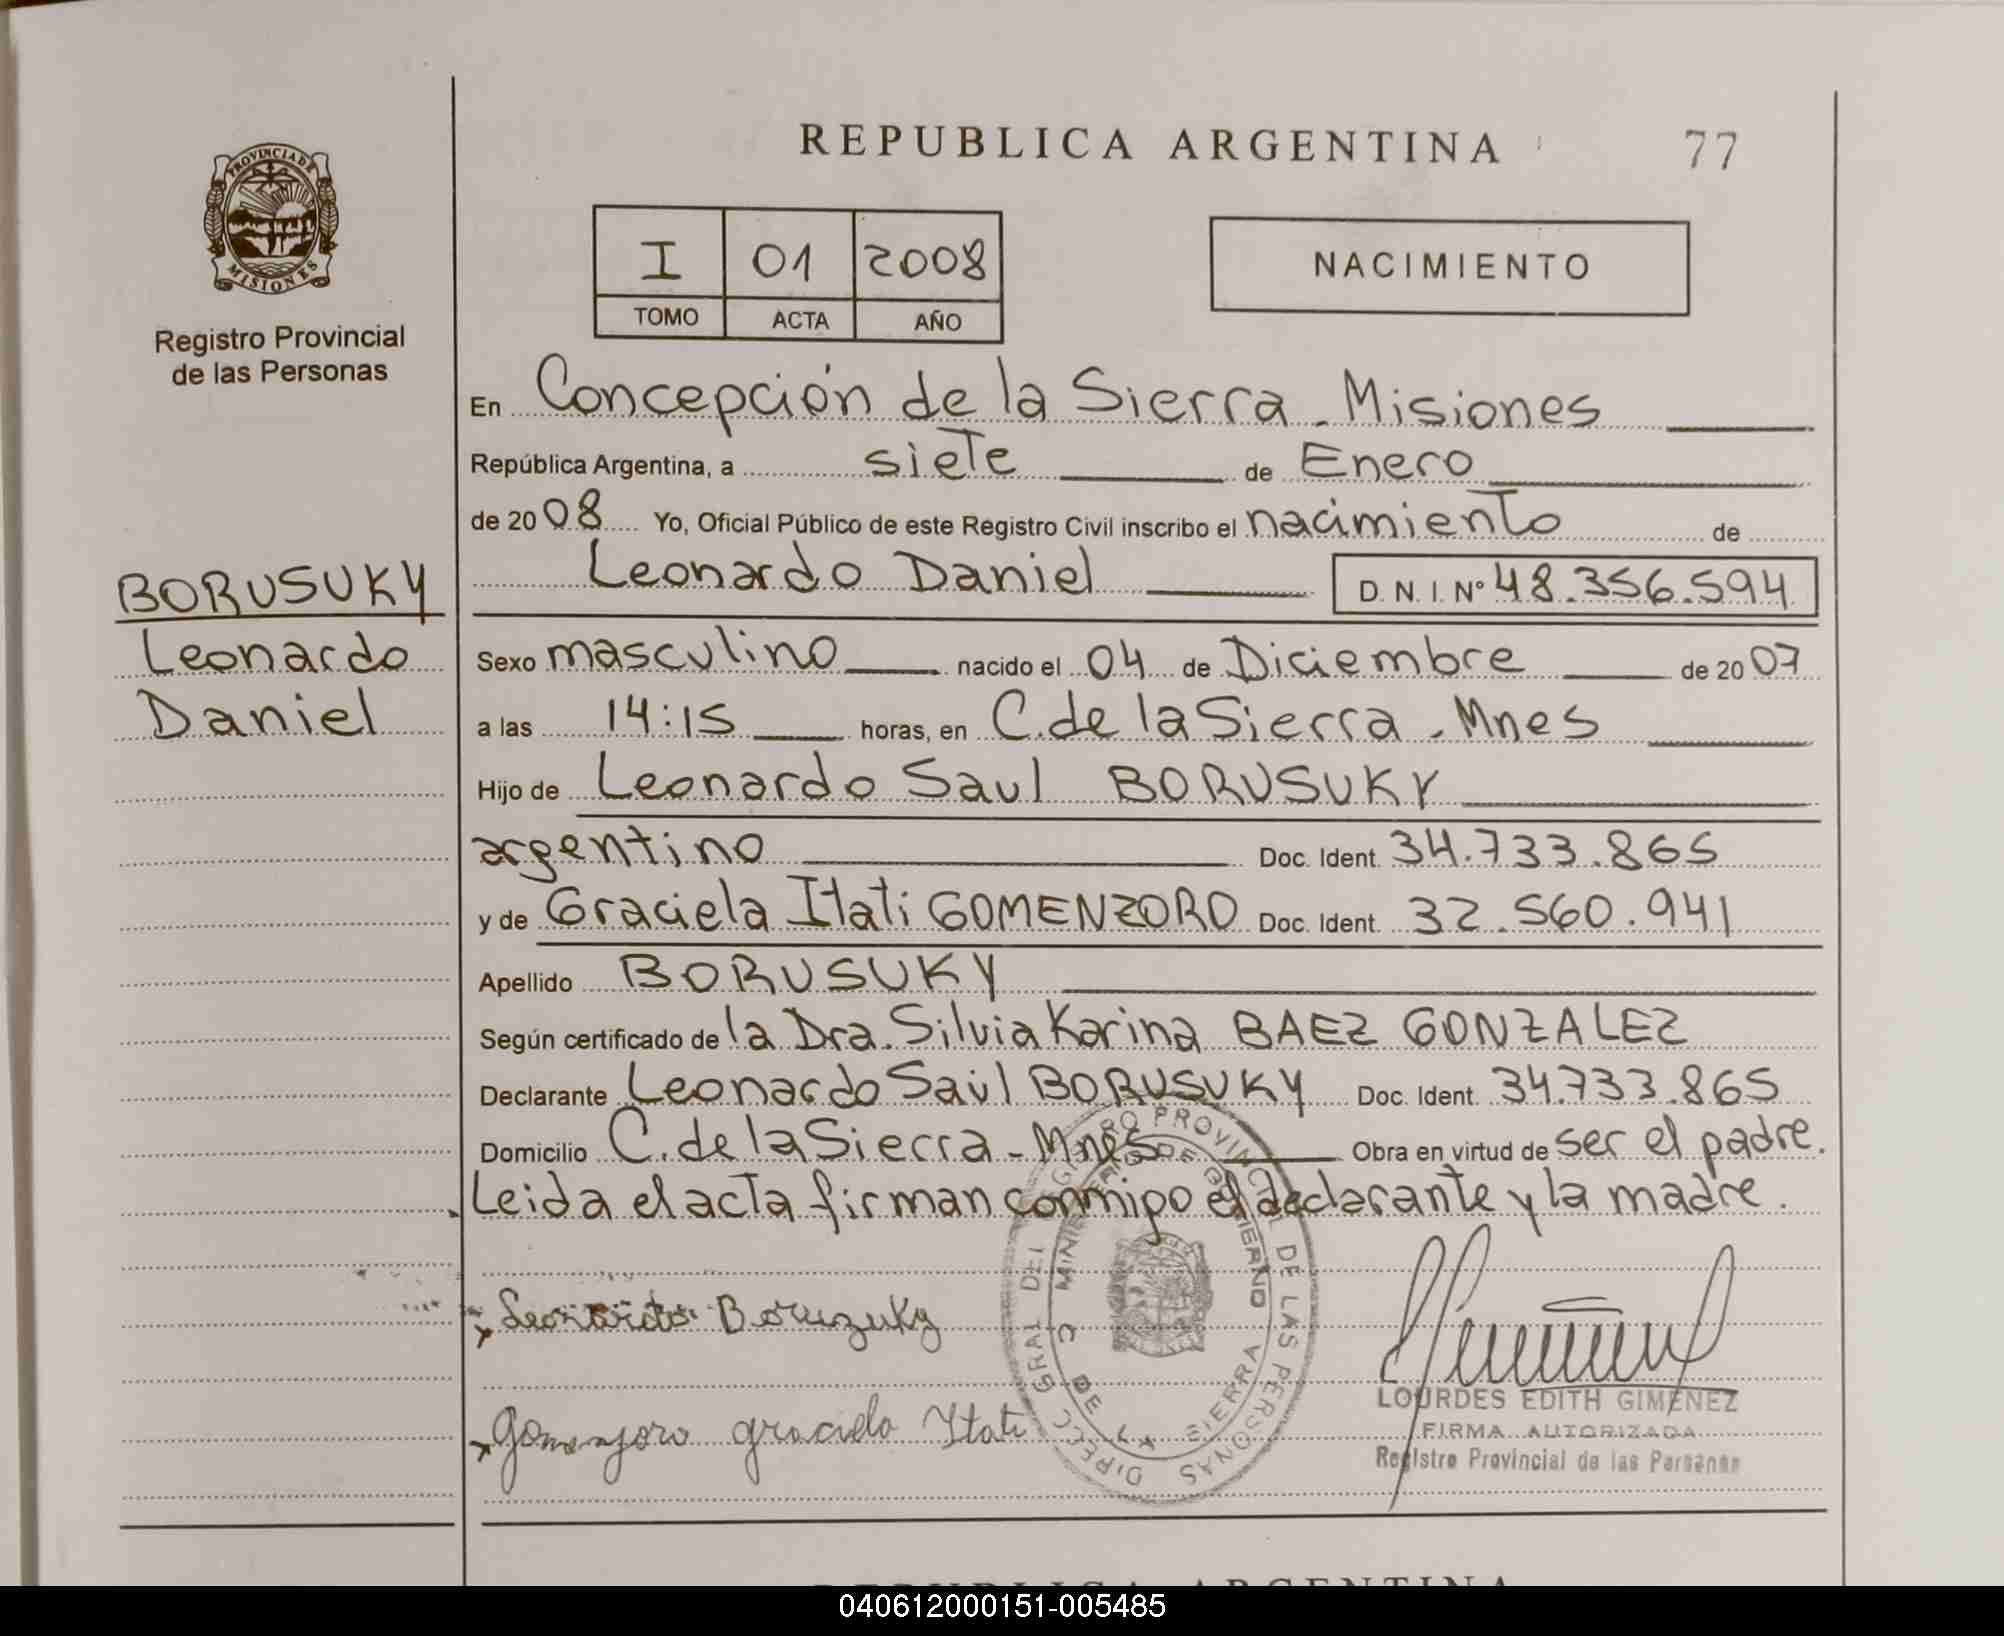 REPUBLICA ARGENTINA
77
PROVINCIA DE
MISIONES
Registro Provincial
de las Personas
I 01 2008
TOMO ACTA AÑO
NACIMIENTO
En Concepción de la Sierra - Misiones
República Argentina, a siete de Enero
de 2008 Yo, Oficial Público de este Registro Civil inscribo el nacimiento de
Leonardo Daniel D. N. I. Nº 48.356.594
BORUSUKY
Leonardo
Daniel
Sexo masculino nacido el 04 de Diciembre de 2007
a las 14:15 horas, en C. de la Sierra - Mnes
Hijo de Leonardo Saul BORUSUKY
argentino Doc. Ident. 34.733.865
y de Graciela Itati GOMENZORO Doc. Ident. 32.560.941
Apellido BORUSUKY
Según certificado de la Dra. Silvia Karina BAEZ GONZALEZ
Declarante Leonardo Saúl BORUSUKY Doc. Ident. 34.733.865
Domicilio C. de la Sierra - Mnes Obra en virtud de ser el padre.
Leida el acta firman conmigo el declarante y la madre.
Leonardo Boruzuky
Gomenzoro graciela Itati
DIRECC GRAL DEL REGISTRO PROVINCIAL DE LAS PERSONAS
MINISTERIO DE GOBIERNO
C DE LA SIERRA
LOURDES EDITH GIMENEZ
FIRMA AUTORIZADA
Registro Provincial de las Personas
REPUBLICA ARGENTINA
040612000151-005485